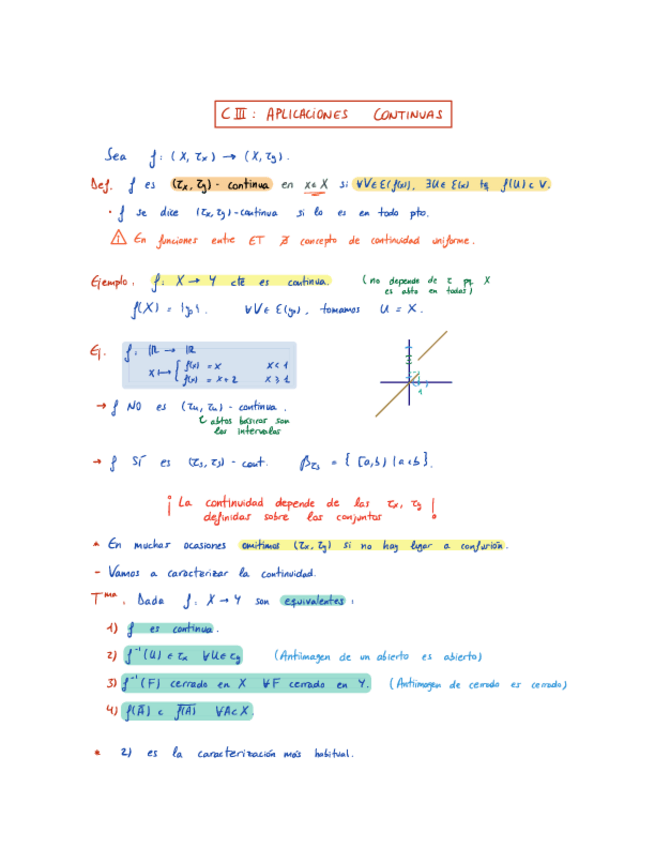 C III : APLICACIONES CONTINUAS
Sea f: (X, τx) → (X, τy).
Def. f es (τx, τy) - continua en x∈X si ∀V∈ℰ(f(x)), ∃U∈ℰ(x) tq f(U)⊂V.
· f se dice (τx, τy)-continua si lo es en todo pto.
⚠ En funciones entre ET ∄ concepto de continuidad uniforme.
Ejemplo. f: X → Y cte es continua. (no depende de τ pq X
es abto en todas)
f(X) = {y₀}. ∀V∈ℰ(y₀), tomamos U = X.
Ej. f: ℝ → ℝ
x ↦ { f(x) = x x<1
f(x) = x+2 x≥1
1
→ f NO es (τu, τu) - continua.
abtos básicos son
los intervalos
→ f SÍ es (τs, τs) - cont. βτs = { [a,b) | a<b }.
¡ La continuidad depende de las τx, τy !
definidas sobre los conjuntos
* En muchas ocasiones omitimos (τx, τy) si no hay lugar a confusión.
- Vamos a caracterizar la continuidad.
Tma. Dada f: X → Y son equivalentes:
1) f es continua.
2) f⁻¹(U) ∈ τx ∀U∈τy (Antiimagen de un abierto es abierto)
3) f⁻¹(F) cerrado en X ∀F cerrado en Y. (Antiimagen de cerrado es cerrado)
4) f(A̅) ⊂ f(A)̅ ∀A⊂X.
* 2) es la caracterización más habitual.